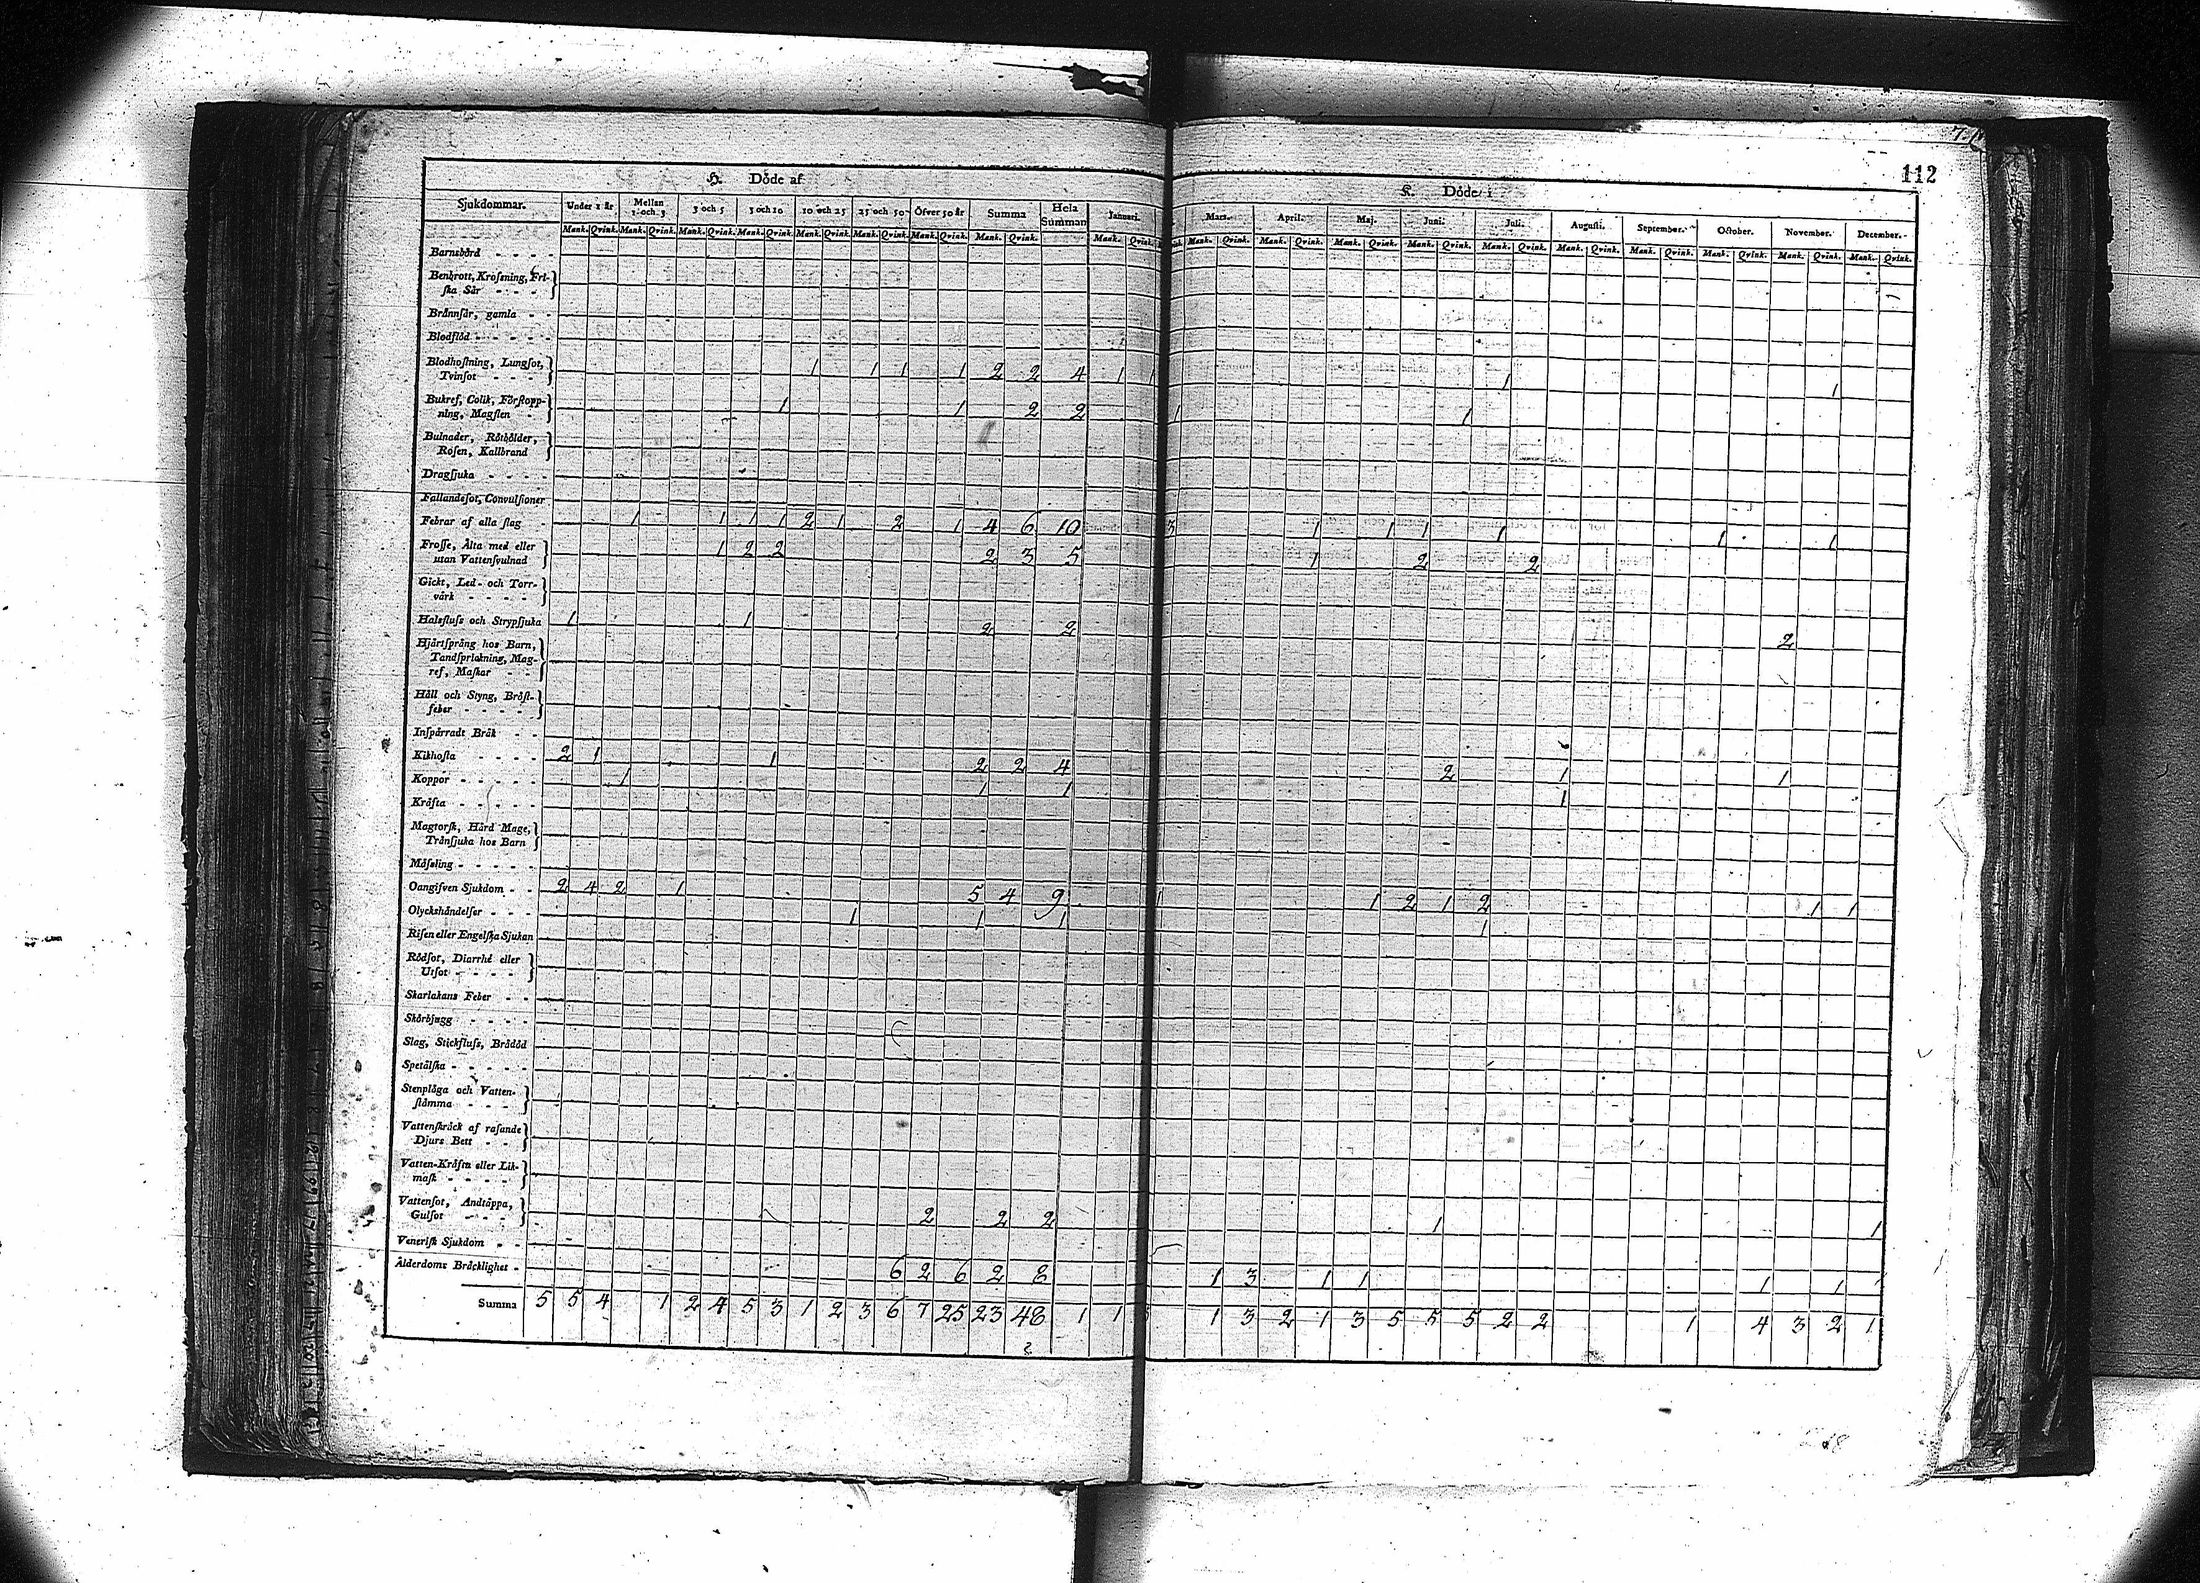 112
H. Döde af
K. Döde i
Sjukdommar. Under 1 år Mellan 1 och 3 3 och 5 5 och 10 10 och 25 25 och 50 Öfver 50 år Summa Hela Summan Januari. Mars. April. Maj. Juni. Juli. Augusti. September. October. November. December.
Mank. Qvink. Mank. Qvink. Mank. Qvink. Mank. Qvink. Mank. Qvink. Mank. Qvink. Mank. Qvink. Mank. Qvink. Mank. Qvink. Mank. Qvink. Mank. Qvink. Mank. Qvink. Mank. Qvink. Mank. Qvink. Mank. Qvink. Mank. Qvink. Mank. Qvink. Mank. Qvink. Mank. Qvink.
Barnsbörd - - - -
Benbrott, Krossning, Fri-
ska Sår - - - -
Brännsår, gamla - -
Blodflöd - - - - -
Blodhostning, Lungsot,
Tvinsot - - - 1 1 1 1 2 2 4 1 1 1 1
Bukref, Colik, Förstopp-
ning, Magsten - 1 1 2 2 1 1
Bulnader, Rötbölder,
Rosen, Kallbrand
Dragsjuka - - - -
Fallandesot, Convulsioner
Febrar af alla slag - 1 1 1 1 2 1 2 1 4 6 10 3 1 1 1 1 1 1
Frosse, Älta med eller
utan Vattensvulnad 1 2 2 2 3 5 1 2 2
Gickt, Led- och Torr-
värk - - - -
Halsfluss och Strypsjuka 1 1 2 2 2
Hjärtsprång hos Barn,
Tandsprickning, Mag-
ref, Maskar - -
Håll och Styng, Bröst-
feber - - - - -
Inspärradt Bråk - -
Kikhosta - - - - 2 1 1 2 2 4 2 1 1
Koppor - - - - - 1 1 1 1
Kräfta - - - - -
Magtorsk, Hård Mage,
Trånsjuka hos Barn
Mässling - - - - -
Oangifven Sjukdom - - 2 4 2 1 5 4 9 1 1 2 1 2 1 1
Olyckshändelser - - - 1 1 1 1
Risen eller Engelska Sjukan
Rödsot, Diarrhé eller
Utsot - - - - -
Skarlakans Feber - -
Skörbjugg - - - -
Slag, Stickfluss, Brådöd
Spetälska - - - - -
Stenplåga och Vatten-
stämma - - - -
Vattenskräck af rasande
Djurs Bett - -
Vatten-Kräfta eller Lik-
mask - - - -
Vattensot, Andtäppa,
Gulsot - - - 2 2 2 1 1
Venerisk Sjukdom - -
Ålderdoms Bräcklighet - 6 2 6 2 8 1 3 1 1 1 1
Summa 5 5 4 1 2 4 5 3 1 2 3 6 7 25 23 48 1 1 1 3 2 1 3 5 5 5 2 2 1 4 3 2 1